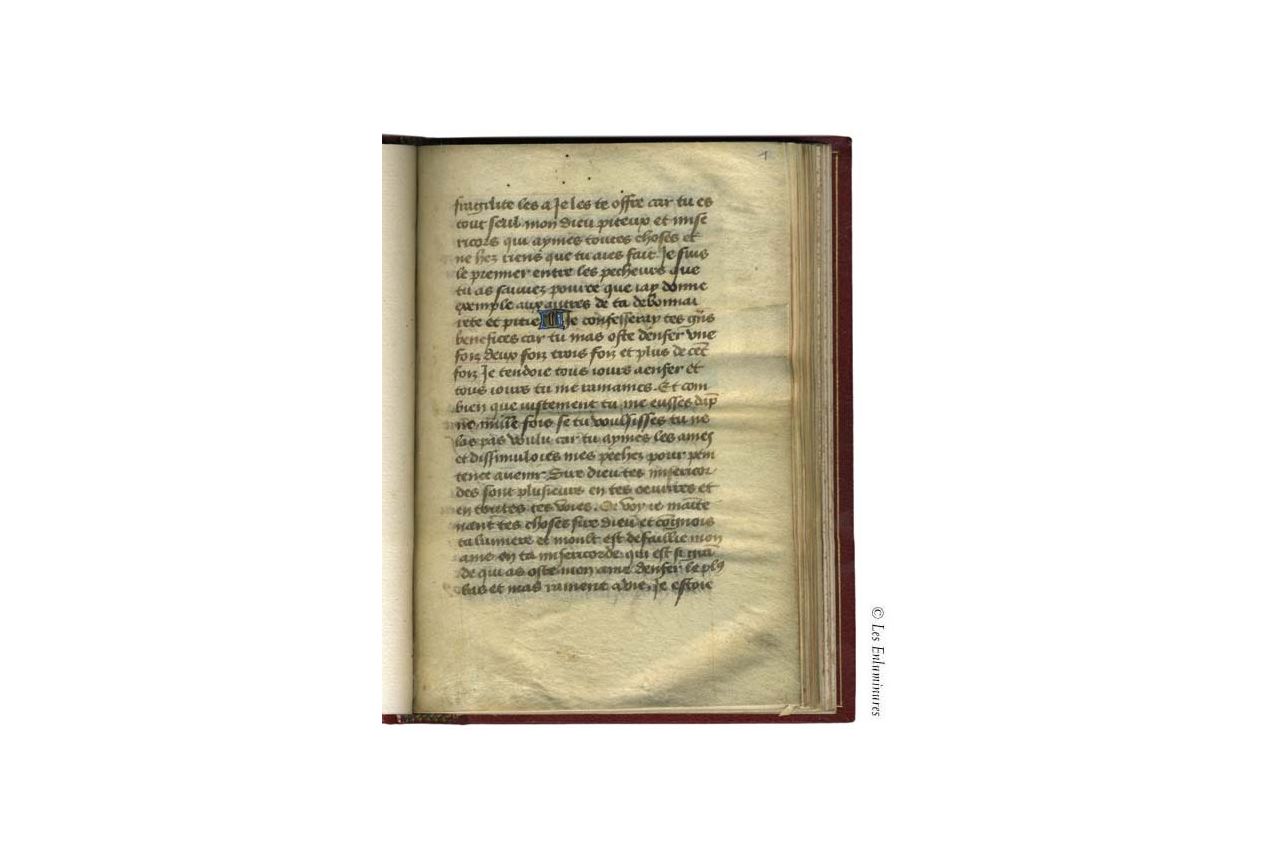 1
fragilite les a Je les te offre car tu es
tout seul mon dieu piteux et mise
ricors qui aymes toutes choses et
ne hez riens que tu aies fait. Je suis
le premier entre les pecheurs que
tu as sauuez pource que iay donne
exemple aux autres de ta debonnai
rete et pitie Je confesseray tes gñs
benefices car tu mas oste denfer vne
foiz deux foiz trois foiz et plus de cẽt
foiz Je tendoie tous iours a enfer et
tous iours tu me ramames. Et com
bien que iustement tu me eusses dãp
ne mille fois se tu voulsisses tu ne
las pas voulu car tu aymes les ames
et dissimuloies mes pechez pour peni
tence auenir. Sire dieu tes misericor
des sont plusieurs en tes oeuures et
en toutes tes voies. Or voy ie mainte
nant tes choses sire dieu et cõgnois
ta lumiere et moult est defaillie mon
ame en ta misericorde qui est si
de qui as oste mon ame denfer le plꝰ
bas et mas ramene a vie. Je estoie
© Les Enluminures